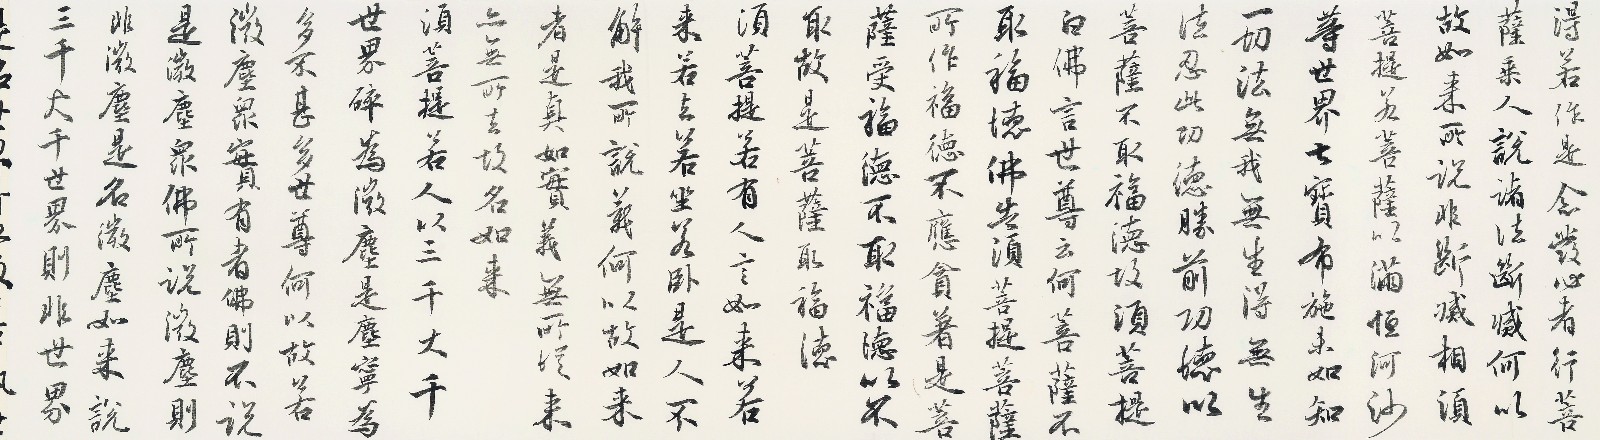 得若作是念發心者行菩
薩乘人說諸法斷滅何以
故如来所说非断滅相須
菩提若菩薩以滿恒河沙
等世界七寶布施未如知
一切法無我無生得無生
法忍此功德勝前功德以
菩薩不取福德故須菩提
白佛言世尊云何菩薩不
取福德佛告須菩提菩薩
所作福德不應貪著是菩
薩受福德不取福德以不
取故是菩薩取福德
須菩提若有人言如来若
来若去若坐若卧是人不
解我所說義何以故如来
者是真如實義無所從来
亦無所去故名如来
須菩提若人以三千大千
世界碎為微塵是塵寧為
多不甚多世尊何以故若
微塵衆實有者佛則不说
是微塵衆佛所说微塵則
非微塵是名微塵如来說
三千大千世界則非世界